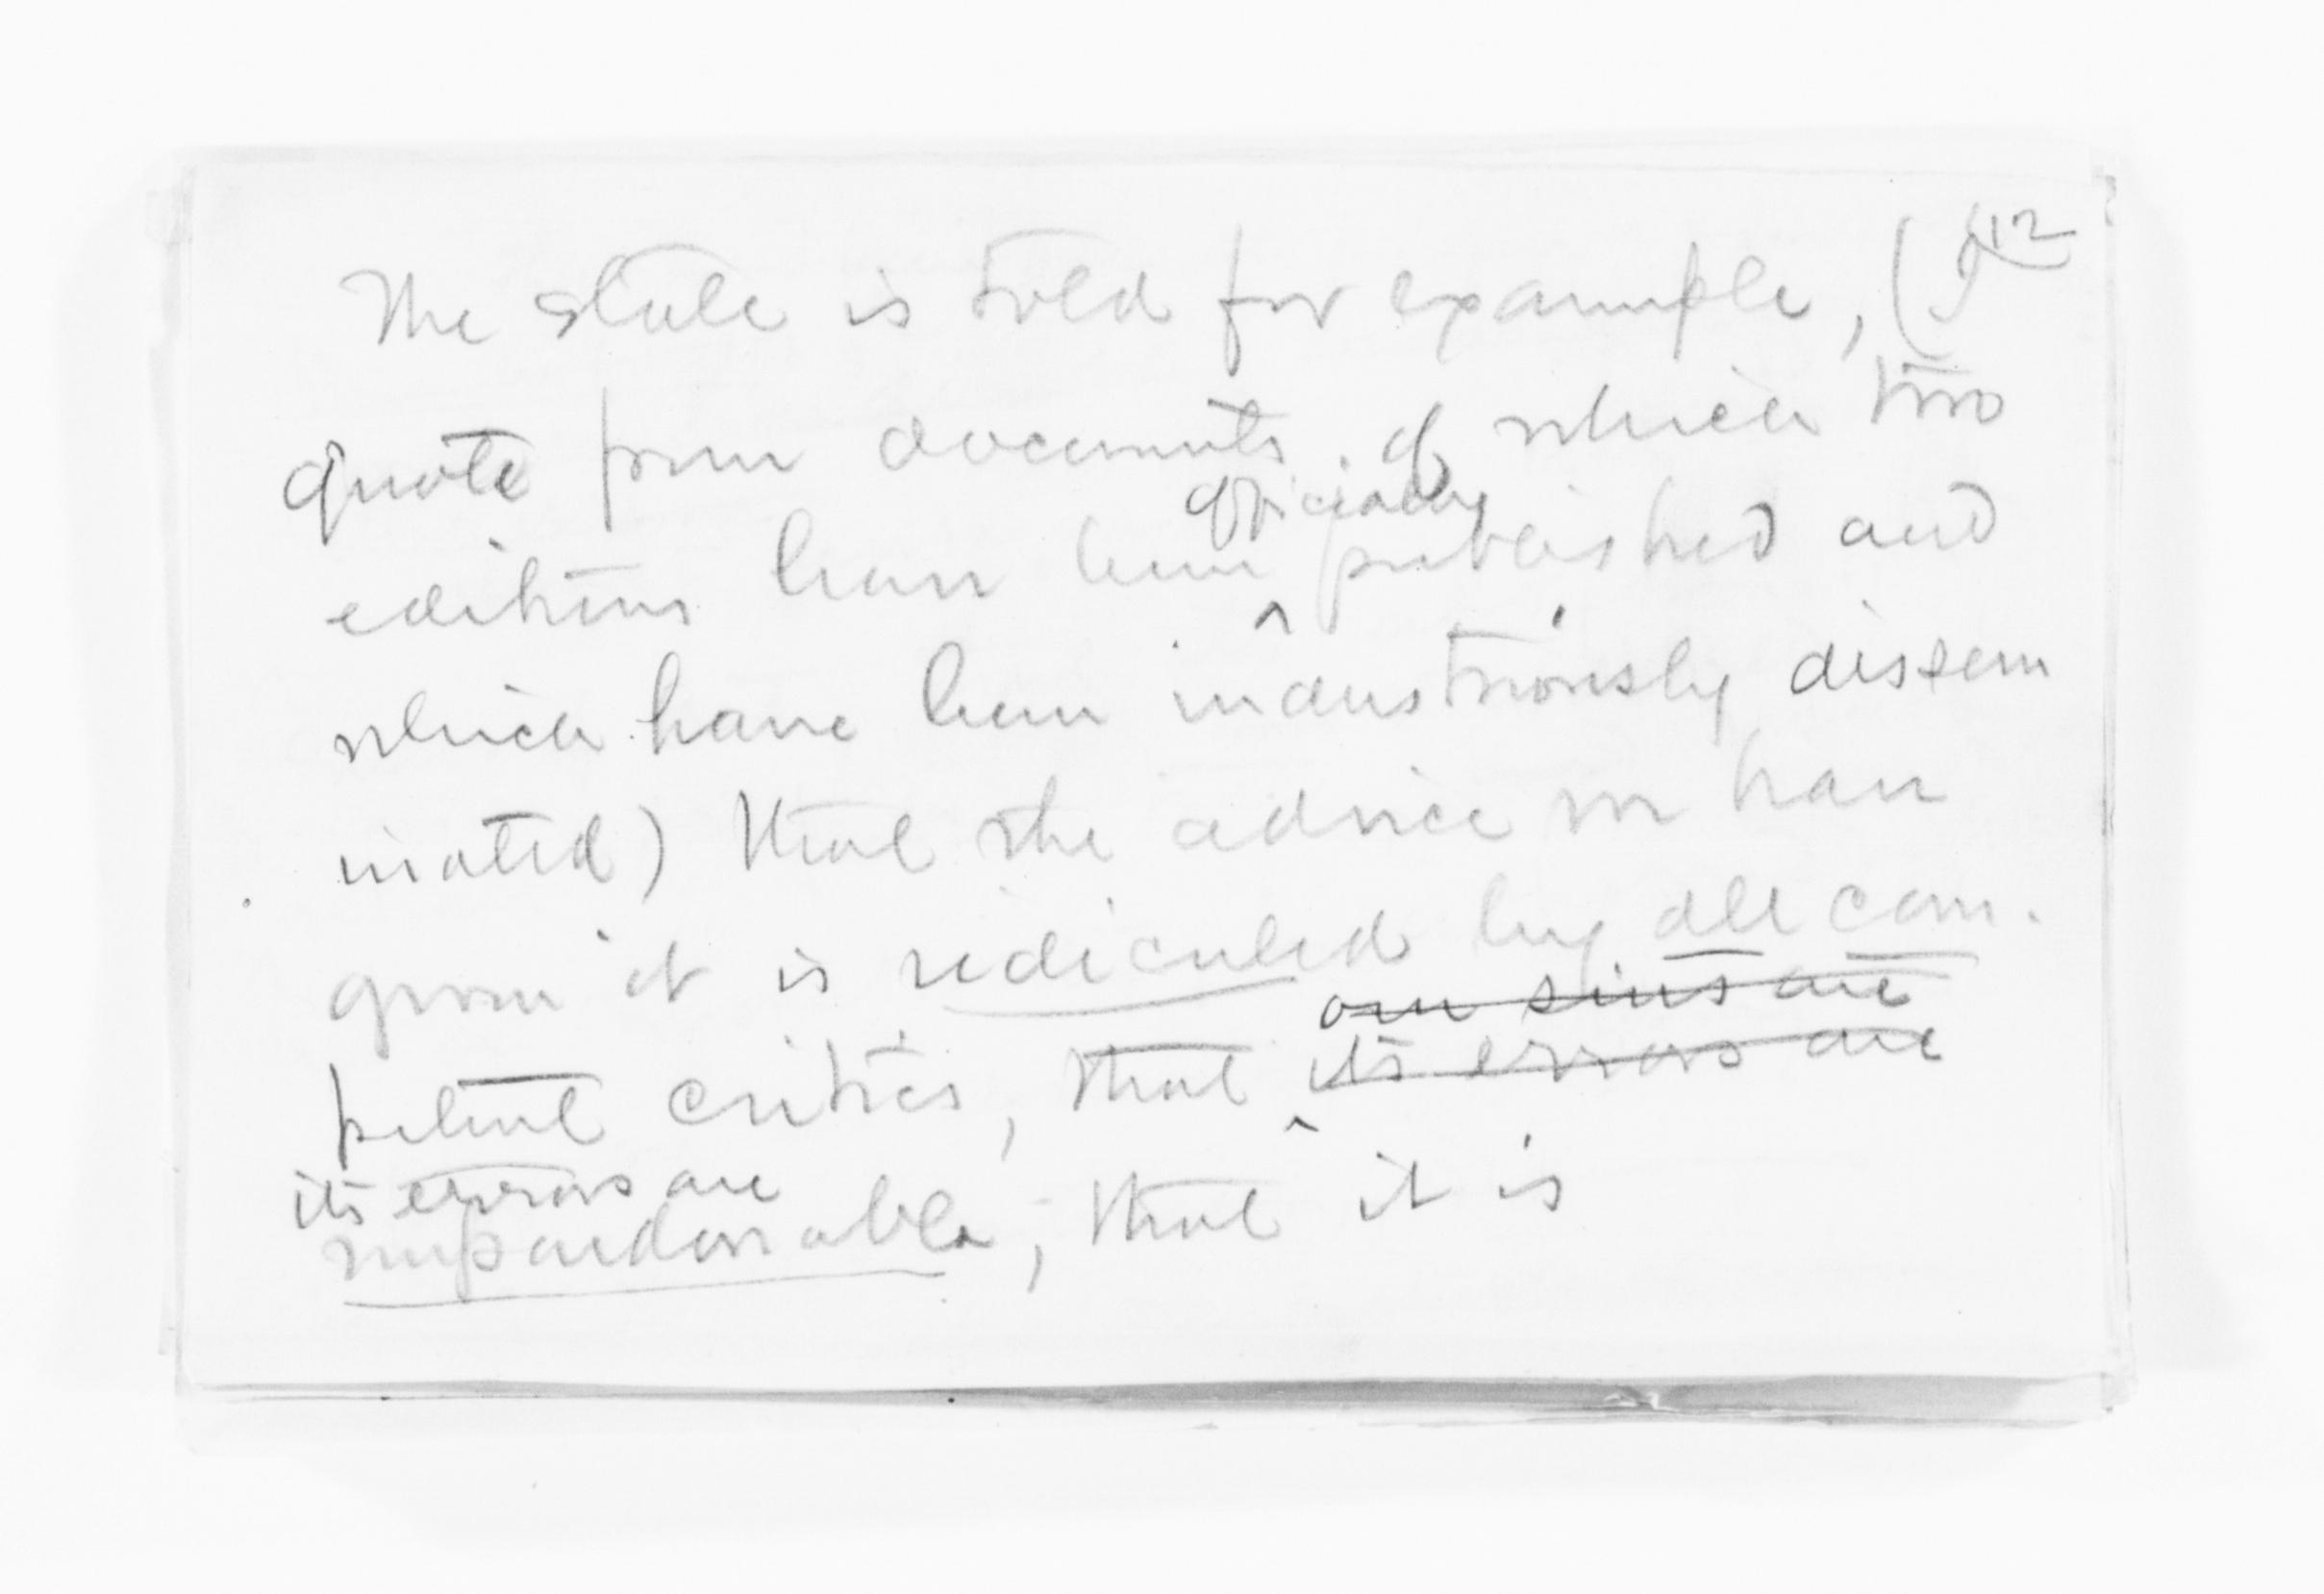 12
The state is told for example, (I
quote from documents of which two
officially
editions have been ^ published and
which have been industriously dissem
inated) that the advice we have
given it is ridiculed by all com-
our sins are
petent critics, that ^ its errors are
its errors are
unpardonable, that it is